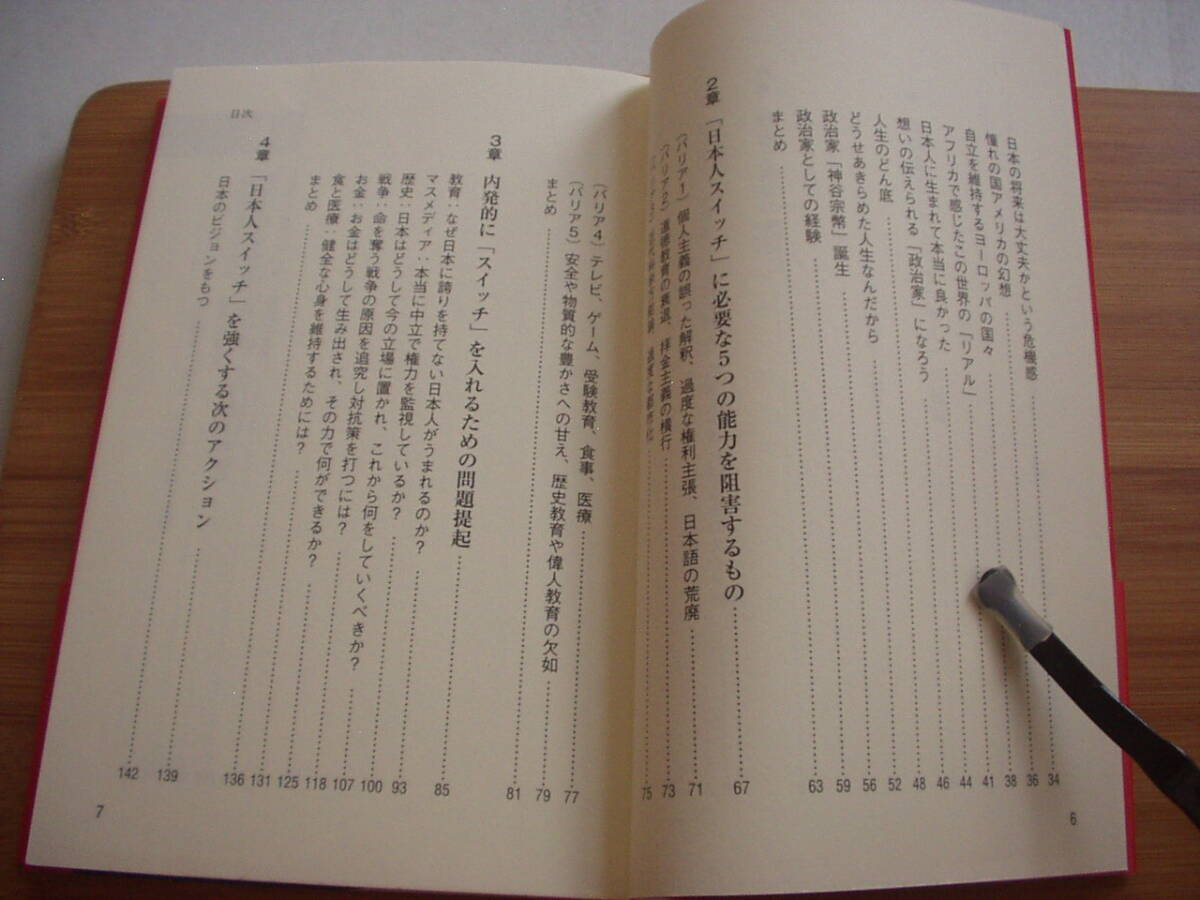 日本の将来は大丈夫かという危機感 34
憧れの国アメリカの幻想 36
自立を維持するヨーロッパの国々 38
アフリカで感じたこの世界の「リアル」 41
日本人に生まれて本当に良かった 44
想いの伝えられる「政治家」になろう 46
人生のどん底 48
どうせあきらめた人生なんだから 52
政治家「神谷宗幣」誕生 56
政治家としての経験 59
まとめ 63
2章 「日本人スイッチ」に必要な5つの能力を阻害するもの 67
(バリア1) 個人主義の誤った解釈、過度な権利主張、日本語の荒廃 71
(バリア2) 道徳教育の衰退、拝金主義の横行 73
75
6
(バリア4) テレビ、ゲーム、受験教育、食事、医療 77
(バリア5) 安全や物質的な豊かさへの甘え、歴史教育や偉人教育の欠如 79
まとめ 81
3章 内発的に「スイッチ」を入れるための問題提起 85
教育:なぜ日本に誇りを持てない日本人がうまれるのか? 93
マスメディア:本当に中立で権力を監視しているか? 100
歴史:日本はどうして今の立場に置かれ、これから何をしていくべきか? 107
戦争:命を奪う戦争の原因を追究し対抗策を打つには? 118
お金:お金はどうして生み出され、その力で何ができるか? 125
食と医療:健全な心身を維持するためには? 131
まとめ 136
4章 「日本人スイッチ」を強くする次のアクション 139
日本のビジョンをもつ 142
目次
7